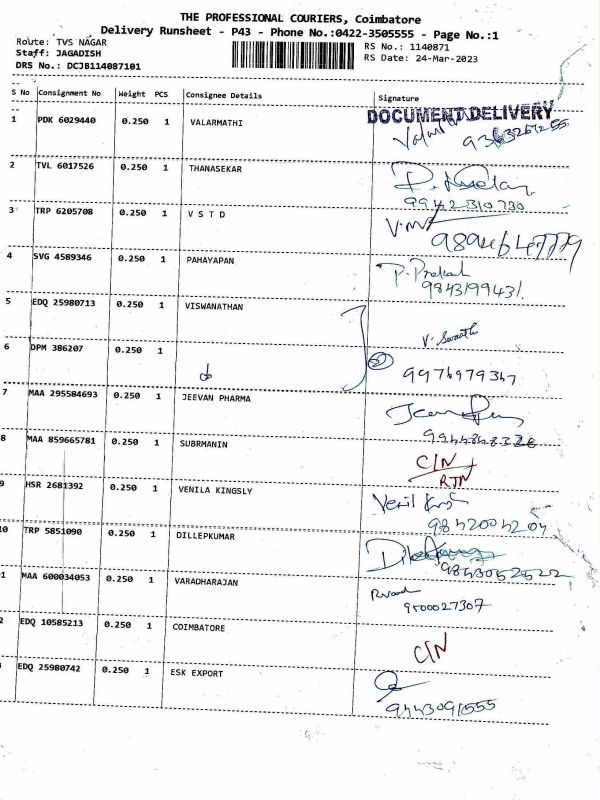 THE PROFESSIONAL COURIERS, Coimbatore
Delivery Runsheet - P43 - Phone No.:0422-3505555 - Page No.:1
Route: TVS NAGAR RS No.: 1140871
Staff: JAGADISH RS Date: 24-Mar-2023
DRS No.: DCJB114087101
S No Consignment No Weight PCS Consignee Details Signature
DOCUMENT DELIVERY
1 PDK 6029440 0.250 1 VALARMATHI
9363267255
2 TVL 6017526 0.250 1 THANASEKAR
99442310730
3 TRP 6205708 0.250 1 V S T D
4 SVG 4589346 0.250 1 PAHAYAPAN P. Prakash
9843199431
5 EDQ 25980713 0.250 1 VISWANATHAN
6 DPM 386207 0.250 1 2
9976979367
7 MAA 295584693 0.250 1 JEEVAN PHARMA
9944848326
8 MAA 859665781 0.250 1 SUBRMANIN CIN
RTN
9 HSR 2681392 0.250 1 VENILA KINGSLY
9842004204
10 TRP 5851090 0.250 1 DILLEPKUMAR
9843052522
1 MAA 600034053 0.250 1 VARADHARAJAN
9500027307
2 EDQ 10585213 0.250 1 COIMBATORE CIN
EDQ 25980742 0.250 1 ESK EXPORT
9443091555